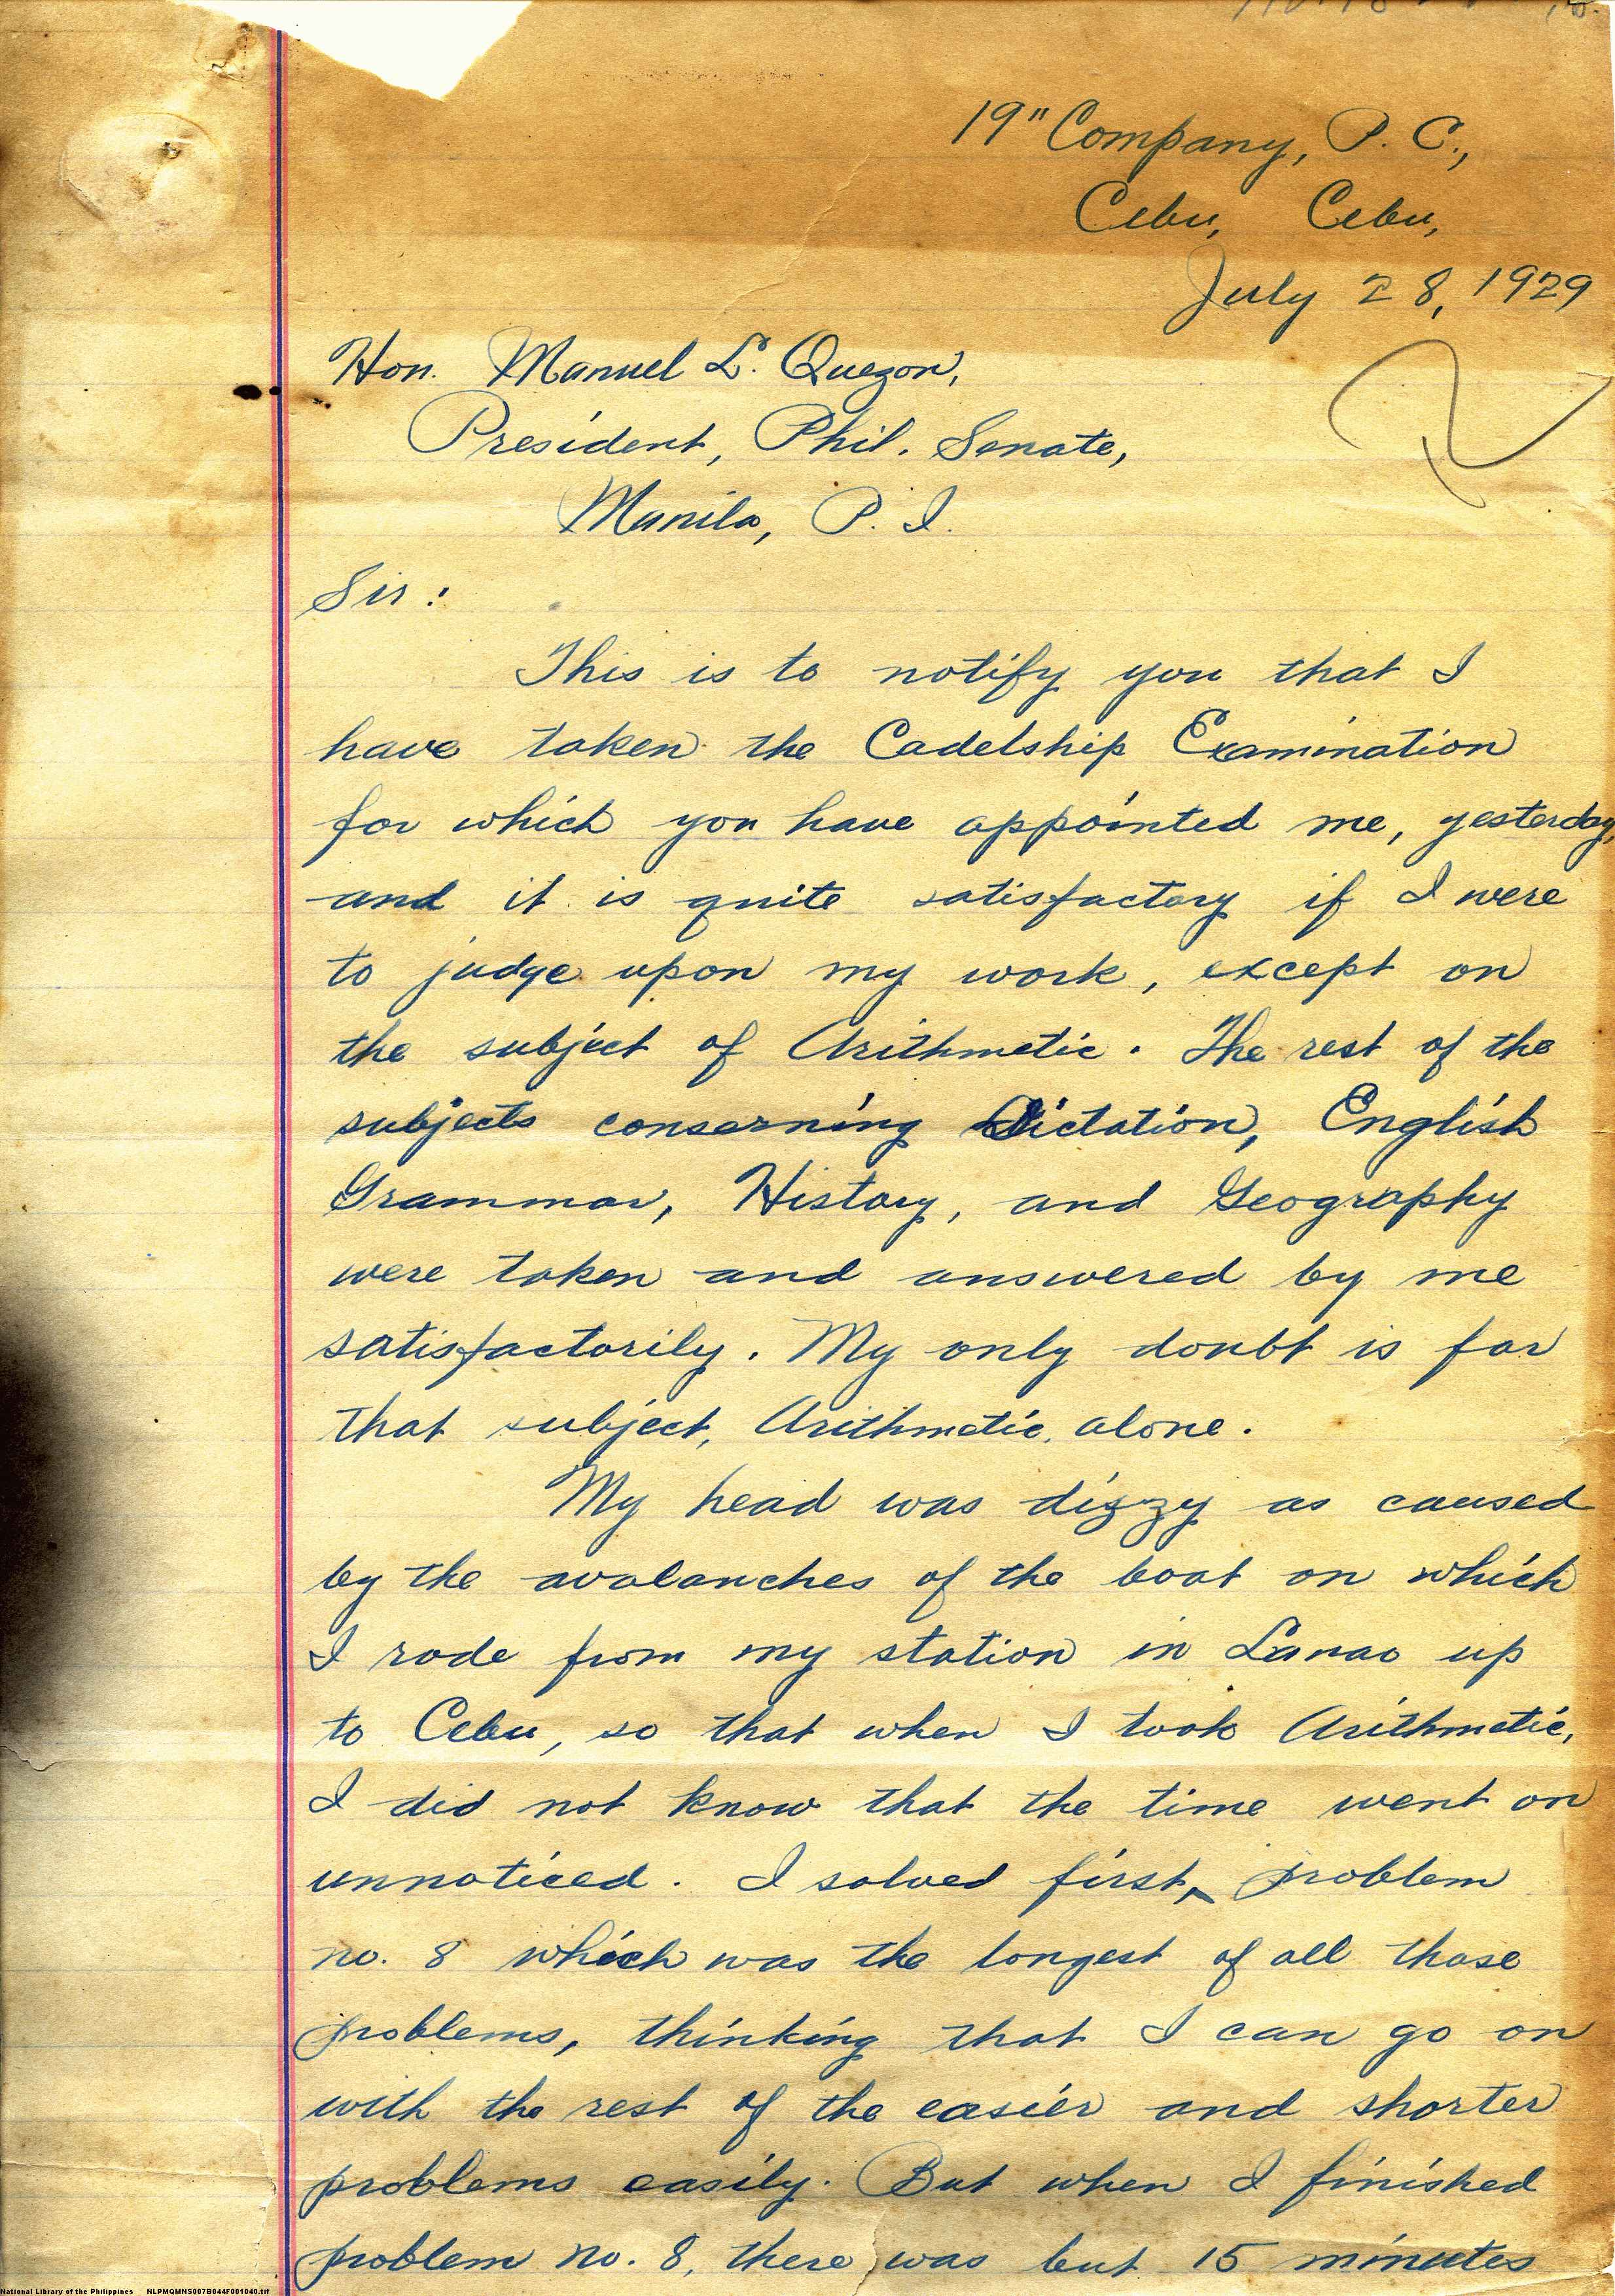 19" Company, P. C.,
Cebu, Cebu,
July 28, 1929
Hon. Manuel L. Quezon,
President, Phil. Senate,
Manila, P. I.
Sir:
This is to notify you that I
have taken the Cadetship Examination
for which you have appointed me, yesterday,
and it is quite satisfactory if I were
to judge upon my work, except on
the subject of Arithmetic. The rest of the
subjects conserning Dictation, English
Grammar, History, and Geography
were taken and answered by me
satisfactorily. My only doubt is for
that subject, Arithmetic, alone.
My head was dizzy as caused
by the avalanches of the boat on which
I rode from my station in Lanao up
to Cebu, so that when I took Arithmetic,
I did not know that the time went on
unnoticed. I solved first, problem
no. 8 which was the longest of all those
problems, thinking that I can go on
with the rest of the easier and shorter
problems easily. But when I finished
problem no. 8, there was but 15 minutes
National Library of the Philippines NLPMQMNS007B044F001040.tif